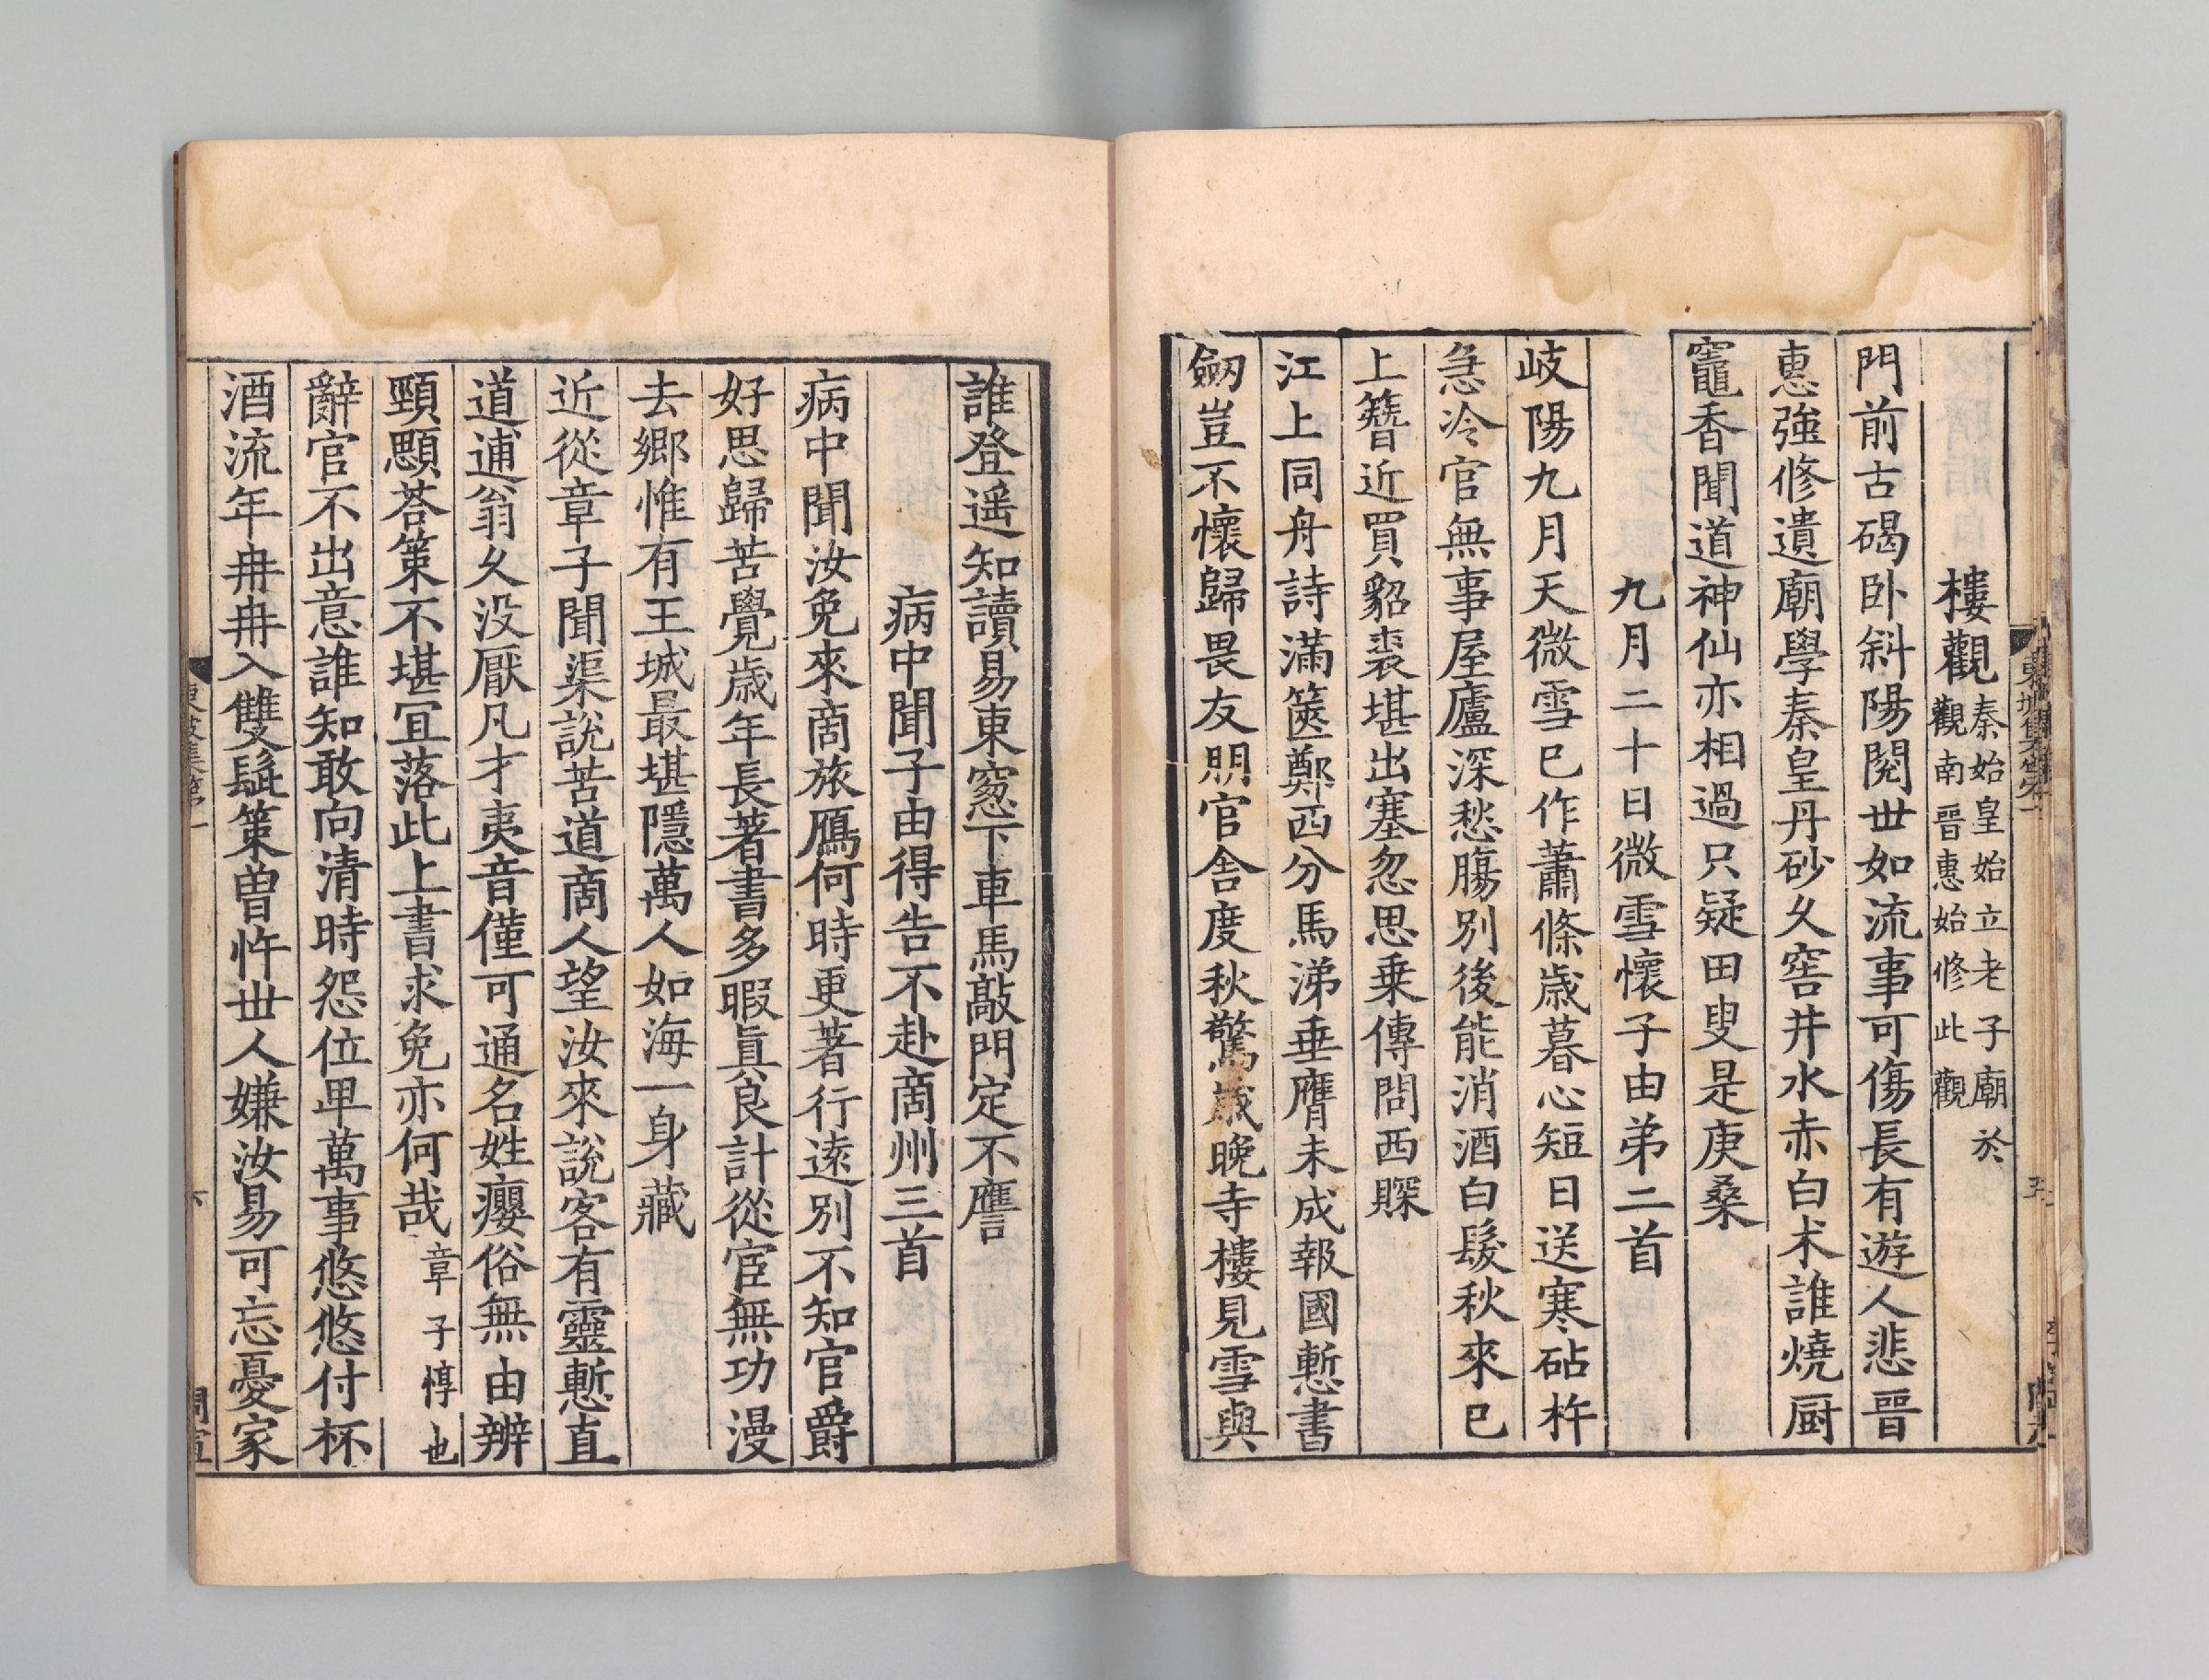 樓觀秦始皇始立老子廟於
觀南晉惠始修此觀
門前古碣卧斜陽閱世如流事可傷長有遊人悲晉
惠強修遺廟學秦皇丹砂乆窖井水赤白术誰燒厨
竈香聞道神仙亦相過只疑田叟是庚桑
九月二十日微雪懷子由弟二首
岐陽九月天微雪巳作蕭條歲暮心短日送寒砧杵
急冷官無事屋廬深愁腸別後能消酒白髮秋來巳
上簪近買貂裘堪出塞忽思乗傳問西賝
江上同舟詩滿篋鄭西分馬涕垂膺未成報國慙書
劒豈不懷歸畏友朋官舍度秋驚歲晚寺樓見雪與
誰登遥知讀易東窻下車馬敲門定不譍
病中聞子由得告不赴商州三首
病中聞汝免來商旅鴈何時更著行逺別不知官爵
好思歸苦覺歲年長著書多暇眞良計從宦無功漫
去鄉惟有王城最堪隱萬人如海一身藏
近從章子聞渠說苦道商人望汝來說客有靈慙直
道逋翁乆没厭凡才夷音僅可通名姓癭俗無由辨
頸顋荅策不堪冝落此上書求免亦何哉章子惇也
辭官不出意誰知敢向清時怨位卑萬事悠悠付杯
酒流年冉冉入雙髭策曾忤丗人嫌汝易可忘憂家
東坡集第一
六